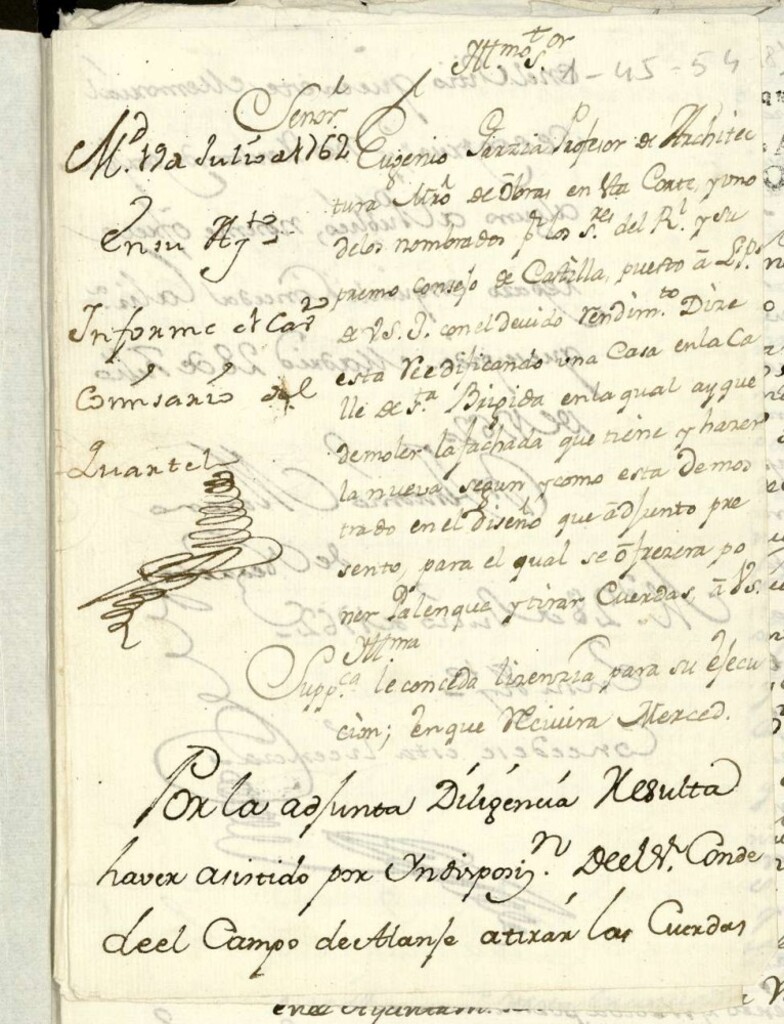 1-45-54
Yll.mo S.or
Señor
M.d 19 de Julio de 1762
En su Ay.to
Informe el Cav.ro
Comisario del
Quartel
Eugenio Garzia Profesor de Architec
tura Mro de Obras en esta Corte, y uno
de los nombrados p.r los S.res del R.l y su
premo consejo de Castilla, puesto â L.P.
de V.S.I. con el devido rendim.to Dize
esta reedificando una Casa en la Ca
lle de S.ta Brigida en la qual ay que
demoler la fachada que tiene y hazer
la nueva segun y como esta demos
trado en el diseño que adjunto pre
sento, para el qual se ofrezera po
ner Palenque y tirar Cuerdas, â VS.
Yll.ma
Supp.ca le conceda lizenzia para su ejecu
cion; en que Recivira Merced.
Por la adjunta Diligencia Resulta
haver asistido por Yndisposiz.n de el S.r Conde
de el Campo de Alanje a tirar las Cuerdas